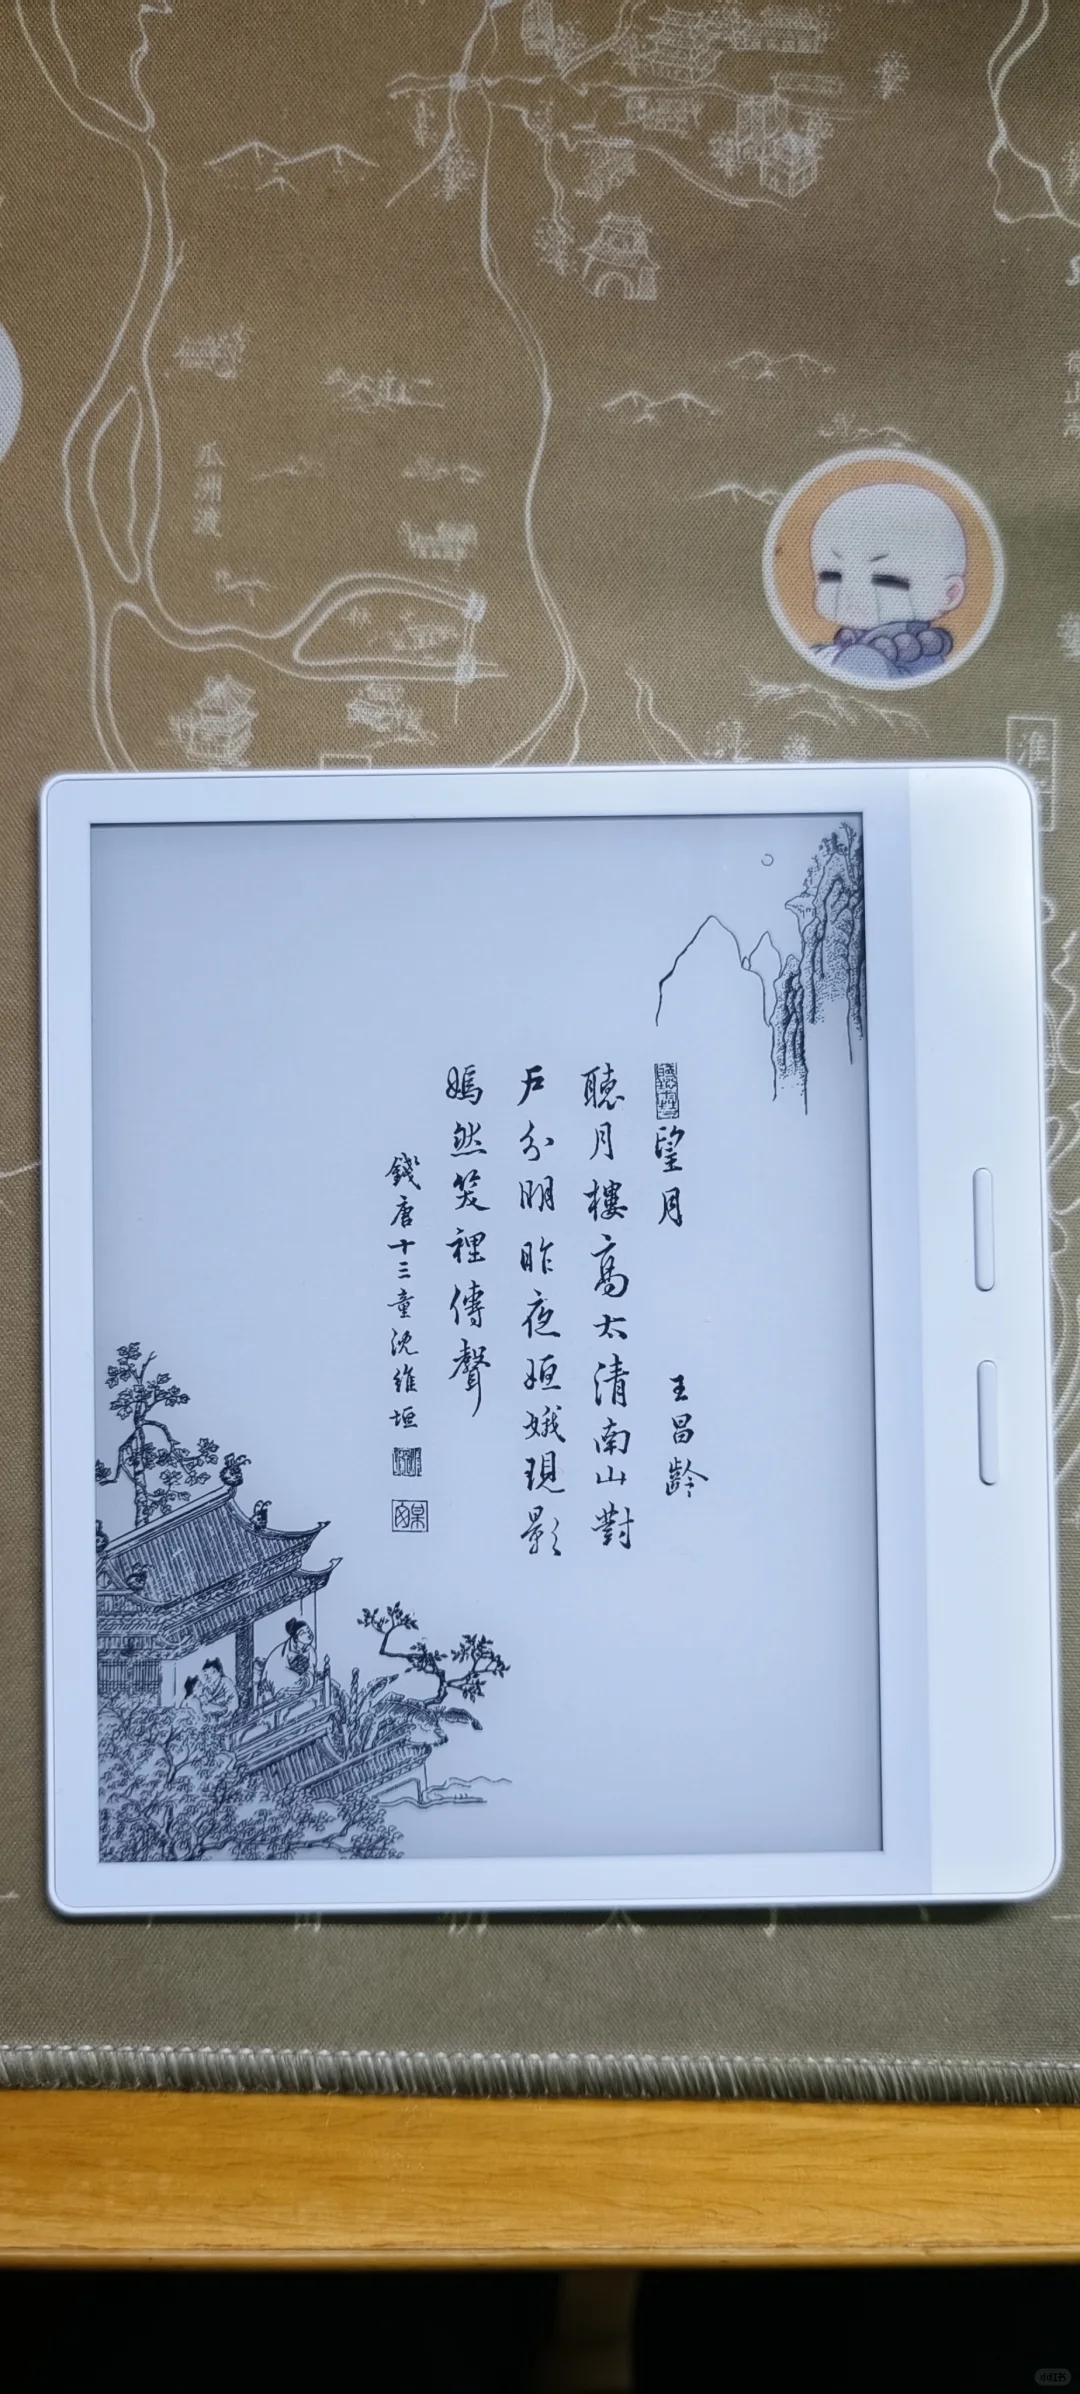 望月
王昌齡
聽月樓高太清南山對
戶分明昨夜姮娥現影
嫣然笑裡傳聲
錢唐十三童沈維垣
瓜洲渡
淮